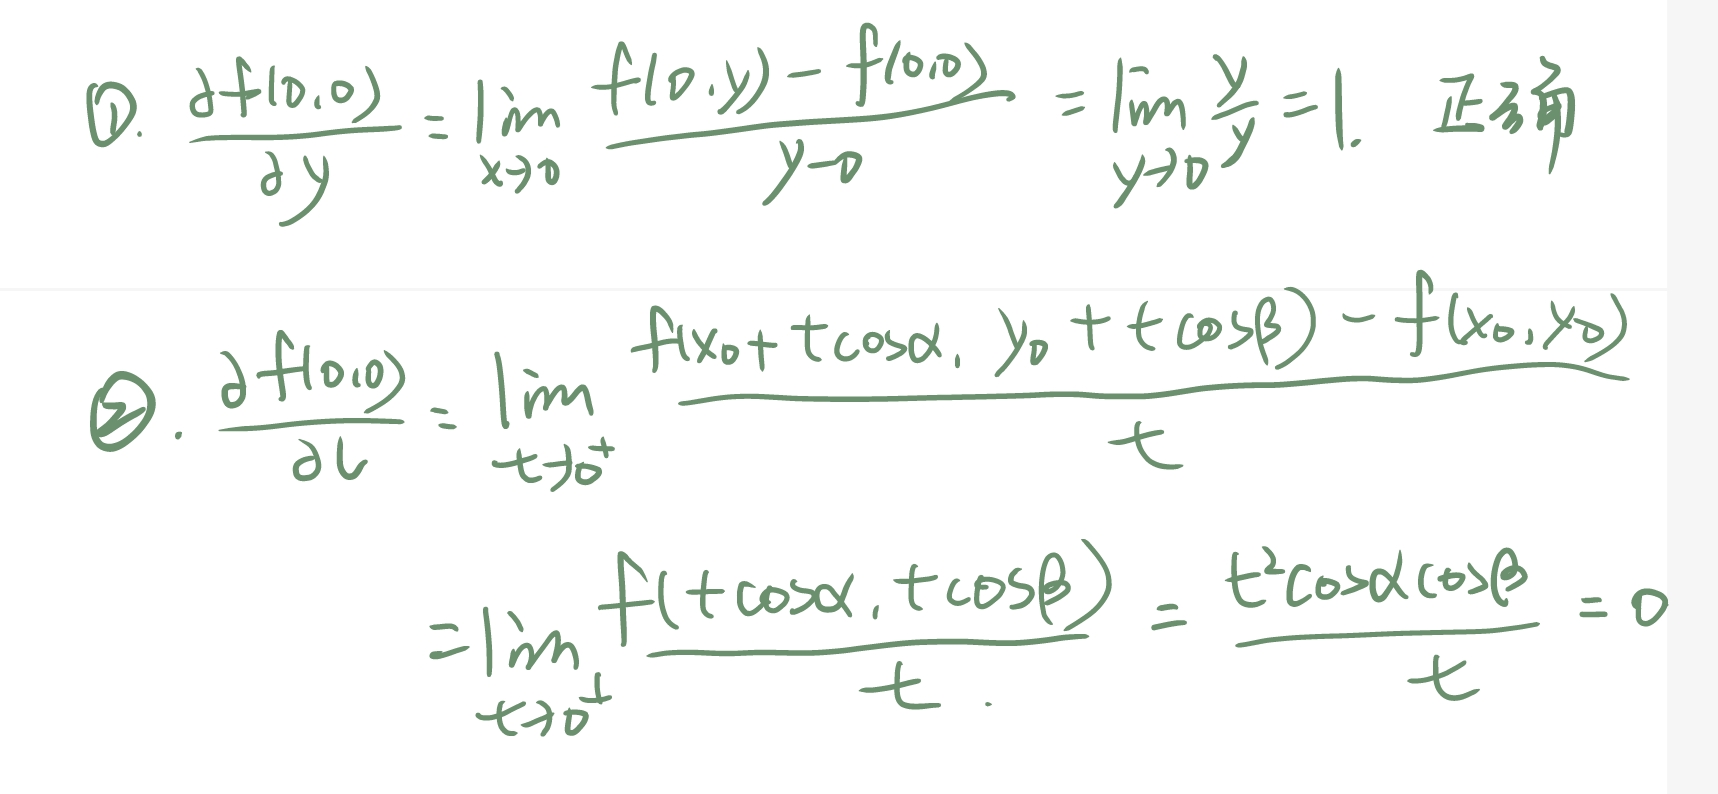 ①. ∂f(0,0)/∂y = lim x→0 f(0,y) - f(0,0) / y-0 = lim y→0 y/y = 1. 正确
②. ∂f(0,0)/∂l = lim t→0⁺ f(x₀+tcosα, y₀+tcosβ) - f(x₀,y₀) / t
= lim t→0⁺ f(tcosα, tcosβ) / t. = t²cosαcosβ / t = 0